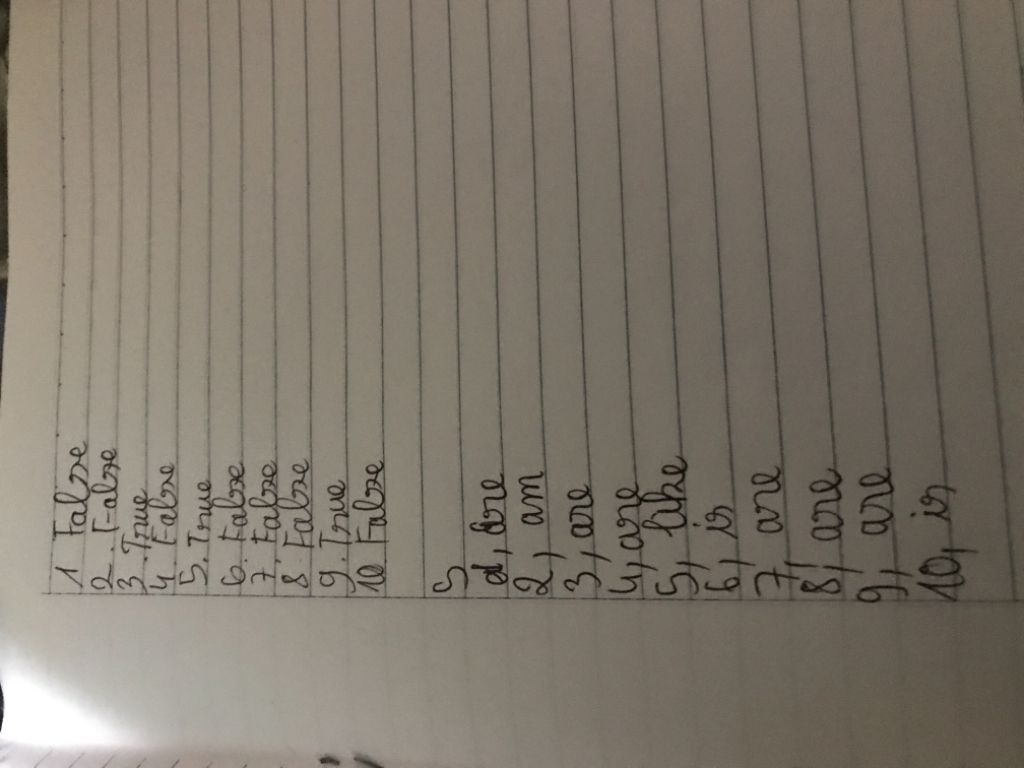 1 False
2. False
3. True
4 False
5. True
6. False
7. False
8. False
9. True
10 False
5
1, are
2, am
3, are
4, are
5, like
6, is
7, are
8, are
9, are
10, is